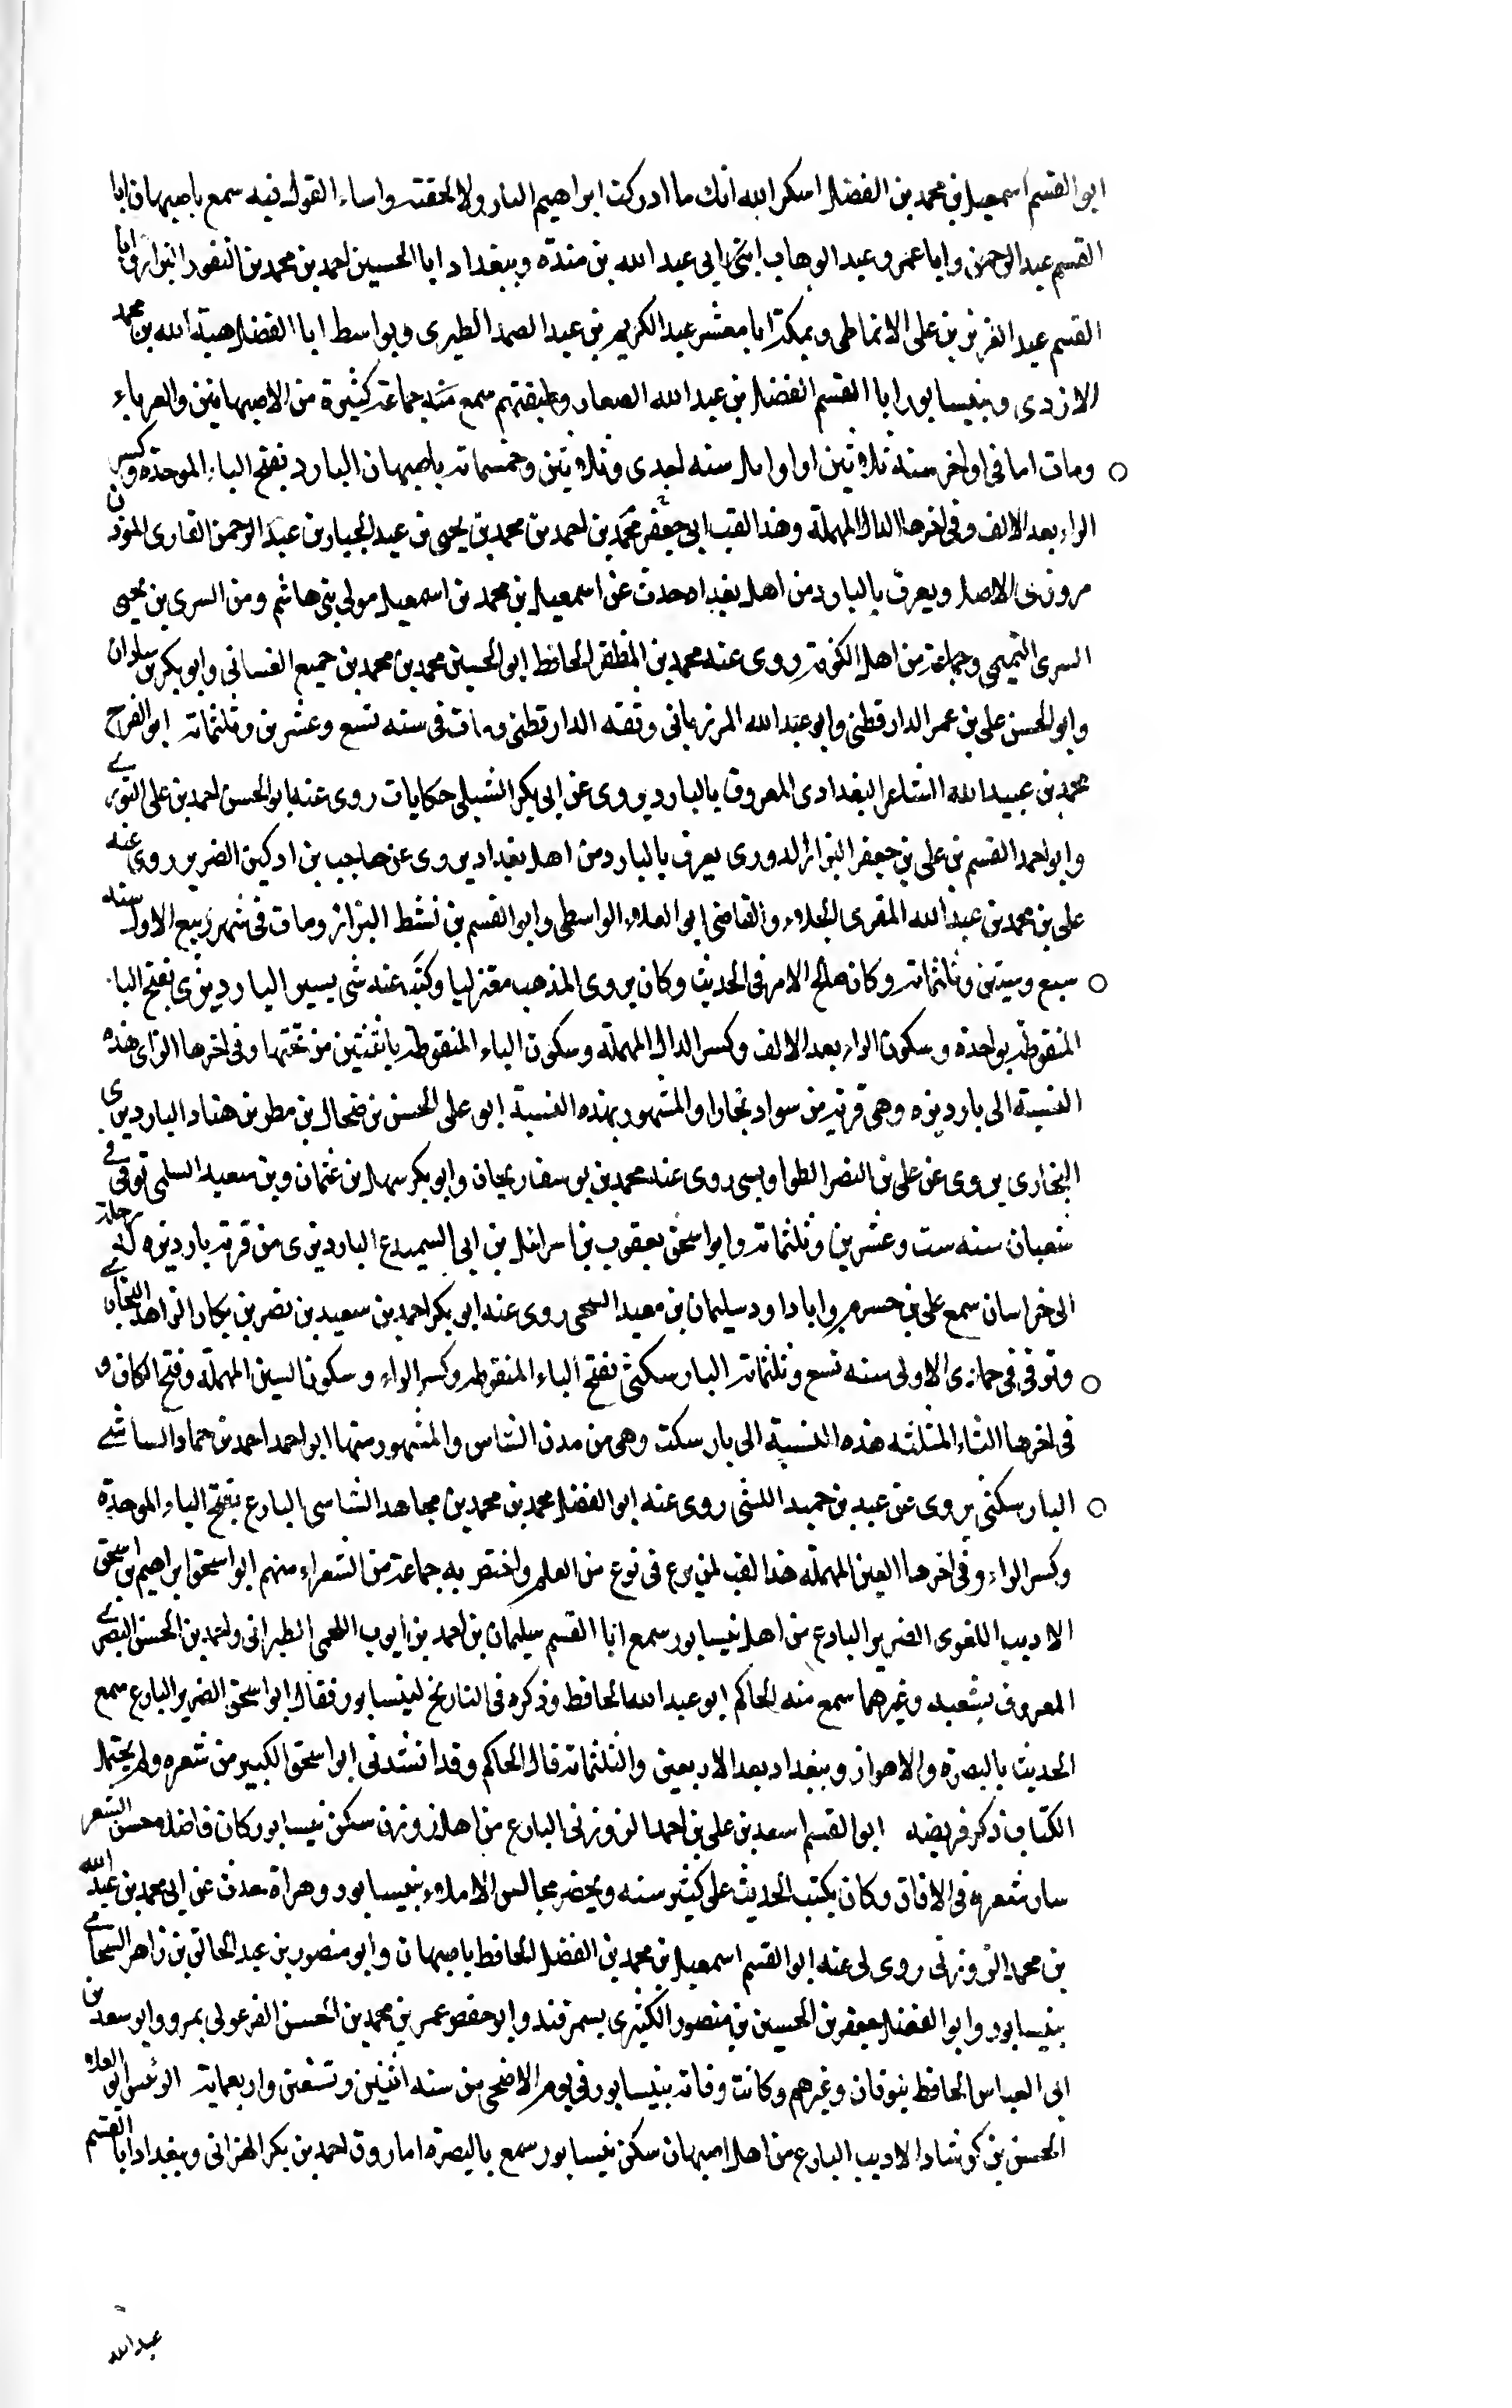 ابو القسم اسمعيل بن محمد بن الفضل اشكر الله انك ما ادركت ابراهيم البار ولا لحقته واساء القول فيه سمع باصبهان ابا
القسم عبد الرحمن وابا عمرو عبد الوهاب ابنى ابى عبد الله بن مندة وببغداد ابا الحسين احمد بن محمد بن النقور البزاز وابا
القسم عبد العزيز بن على الانماطى وبمكة ابا معشر عبد الكريم بن عبد الصمد الطبرى وبواسط ابا الفضل هبة الله بن محمد
الازدى وبنيسابور ابا القسم الفضل بن عبد الله الصفار وطبقتهم سمع منه جماعة كثيرة من الاصبهانيين والغرباء
ومات اما فى اواخر سنة ثلاثين او اوايل سنه احدى وثلاثين وخمسمائه باصبهان البارد بفتح الباء الموحدة وكسر
الراء بعد الالف وفى اخرها الدال المهملة وهذا لقب ابى جعفر محمد بن احمد بن محمد بن يحيى بن عبد الجبار بن عبد الرحمن القارى الموذن
مروزى الاصل ويعرف بالبارد من اهل بغداد حدث عن اسمعيل بن محمد بن اسمعيل مولى بنى هاشم ومن السرى بن يحيى
السرى التميمى وجماعة من اهل الكوفة روى عنه محمد بن المظفر الحافظ ابو الحسين محمد بن محمد بن جميع الغسانى وابو بكر بن سلوان
وابو الحسن على بن عمر الدارقطنى وابو عبد الله المرزبانى وثقه الدارقطنى ومات فى سنه تسع وعشرين وثلثمائة ابو الفرج
محمد بن عبيد الله الشاعر البغدادى المعروف بالبارد يروى عن ابى بكر الشبلى حكايات روى عنه ابو الحسن احمد بن على التوزى
وابو احمد القسم بن على بن جعفر البزاز الدورى يعرف بالبارد من اهل بغداد يروى عن حاجب بن اركين الضرير روى عنه
على بن محمد بن عبد الله المقرى الحذاء والقاضى ابو العلاء الواسطى وابو القسم بن نشط البزاز ومات فى شهر ربيع الاول سنه
سبع وستين وثلثمائه وكان صالح الامر فى الحديث وكان يروى المذهب معتزليا وكتبه عنه شى يسير الباردينزى بفتح الباء
المنقوطة بواحدة وسكون الراء بعد الالف وكسر الدال المهملة وسكون الياء المنقوطة باثنتين من تحتها وفى اخرها الزاى هذه
النسبة الى باردينزه وهى قرية من سواد بخارا والمشهور بهذه النسبة ابو على الحسن بن ضحاك بن مطر بن هناد الباردينزى
البخارى يروى عن على بن النضر الطواويسى روى عنه محمد بن يوسف ريحان وابو بكر سهل بن عثمان وبن سعيد السلمى توفى فى
شعبان سنه ست وعشرين وثلثمائة وابو اسحق يعقوب بن اسرائيل بن ابى السميدع الباردينزى من قرية باردينزه له رحلة
الى خراسان سمع على بن خشرم وابا داود سليمان بن معبد السنجى روى عنه ابو بكر احمد بن سعيد بن نصر بن بكار الزاهد البخارى
وتوفى فى جمادى الاولى سنه تسع وثلثمائه البارسكثى بفتح الباء المنقوطه وكسر الراء وسكون السين المهملة وفتح الكاف و
فى اخرها الثاء المثلثه هذه النسبة الى بارسكث وهى من مدن الشاش والمشهور منها ابو احمد احمد بن حماد الشاشى
البارسكثى يروى عن عبد بن حميد الكشى روى عنه ابو الفضل محمد بن محمد بن مجاهد الشاشى البارع بفتح الباء الموحدة
وكسر الراء وفى اخرها العين المهملة هذا لقب لمن برع فى نوع من العلم واختص به جماعة من الشعراء منهم ابو اسحق ابراهيم بن اسحق
الاديب اللغوى الضرير البارع من اهل نيسابور سمع ابا القسم سليمان بن احمد بن ايوب اللخمى الطبرانى واحمد بن الحسن البصرى
المعروف بشعبه وغيرهما سمع منه الحاكم ابو عبد الله الحافظ وذكره فى التاريخ لنيسابور فقال ابو اسحق الضرير البارع سمع
الحديث بالبصرة والاهواز وببغداد بعد الاربعين والثلثمائة قال الحاكم وقد انشدنى ابو اسحق الكبير من شعره ولم يحتمل
الكتاب ذكر قريضه ابو القسم اسعد بن على بن احمد الزوزنى البارع من اهل زوزن سكن نيسابور كان فاضلا محسن الشعر
سار شعره فى الافاق وكان يكتب الحديث على كبر سنه ويحضر مجالس الاملاء بنيسابور وهراة حدث عن ابى محمد بن عبد الله
بن محمد الزوزنى روى لى عنه ابو القسم اسمعيل بن محمد بن الفضل الحافظ باصبهان وابو منصور بن عبد الخالق بن زاهر الشحامى
بنيسابور وابو الفضل جعفر بن الحسين بن منصور الكثيرى بسمرقند وابو حفص عمر بن محمد بن الحسن الفرغولى بمرو وابو سعد بن
ابى العباس الحافظ بنوقان وغيرهم وكانت وفاته بنيسابور فى يوم الاضحى من سنه اثنين وتسعين واربعمائة الرئيس ابو العلاء
الحسن بن كوشاد الاديب البارع من اهل اصبهان سكن نيسابور سمع بالبصرة اما روق احمد بن بكر الهزانى وببغداد ابا القسم
عبد الله